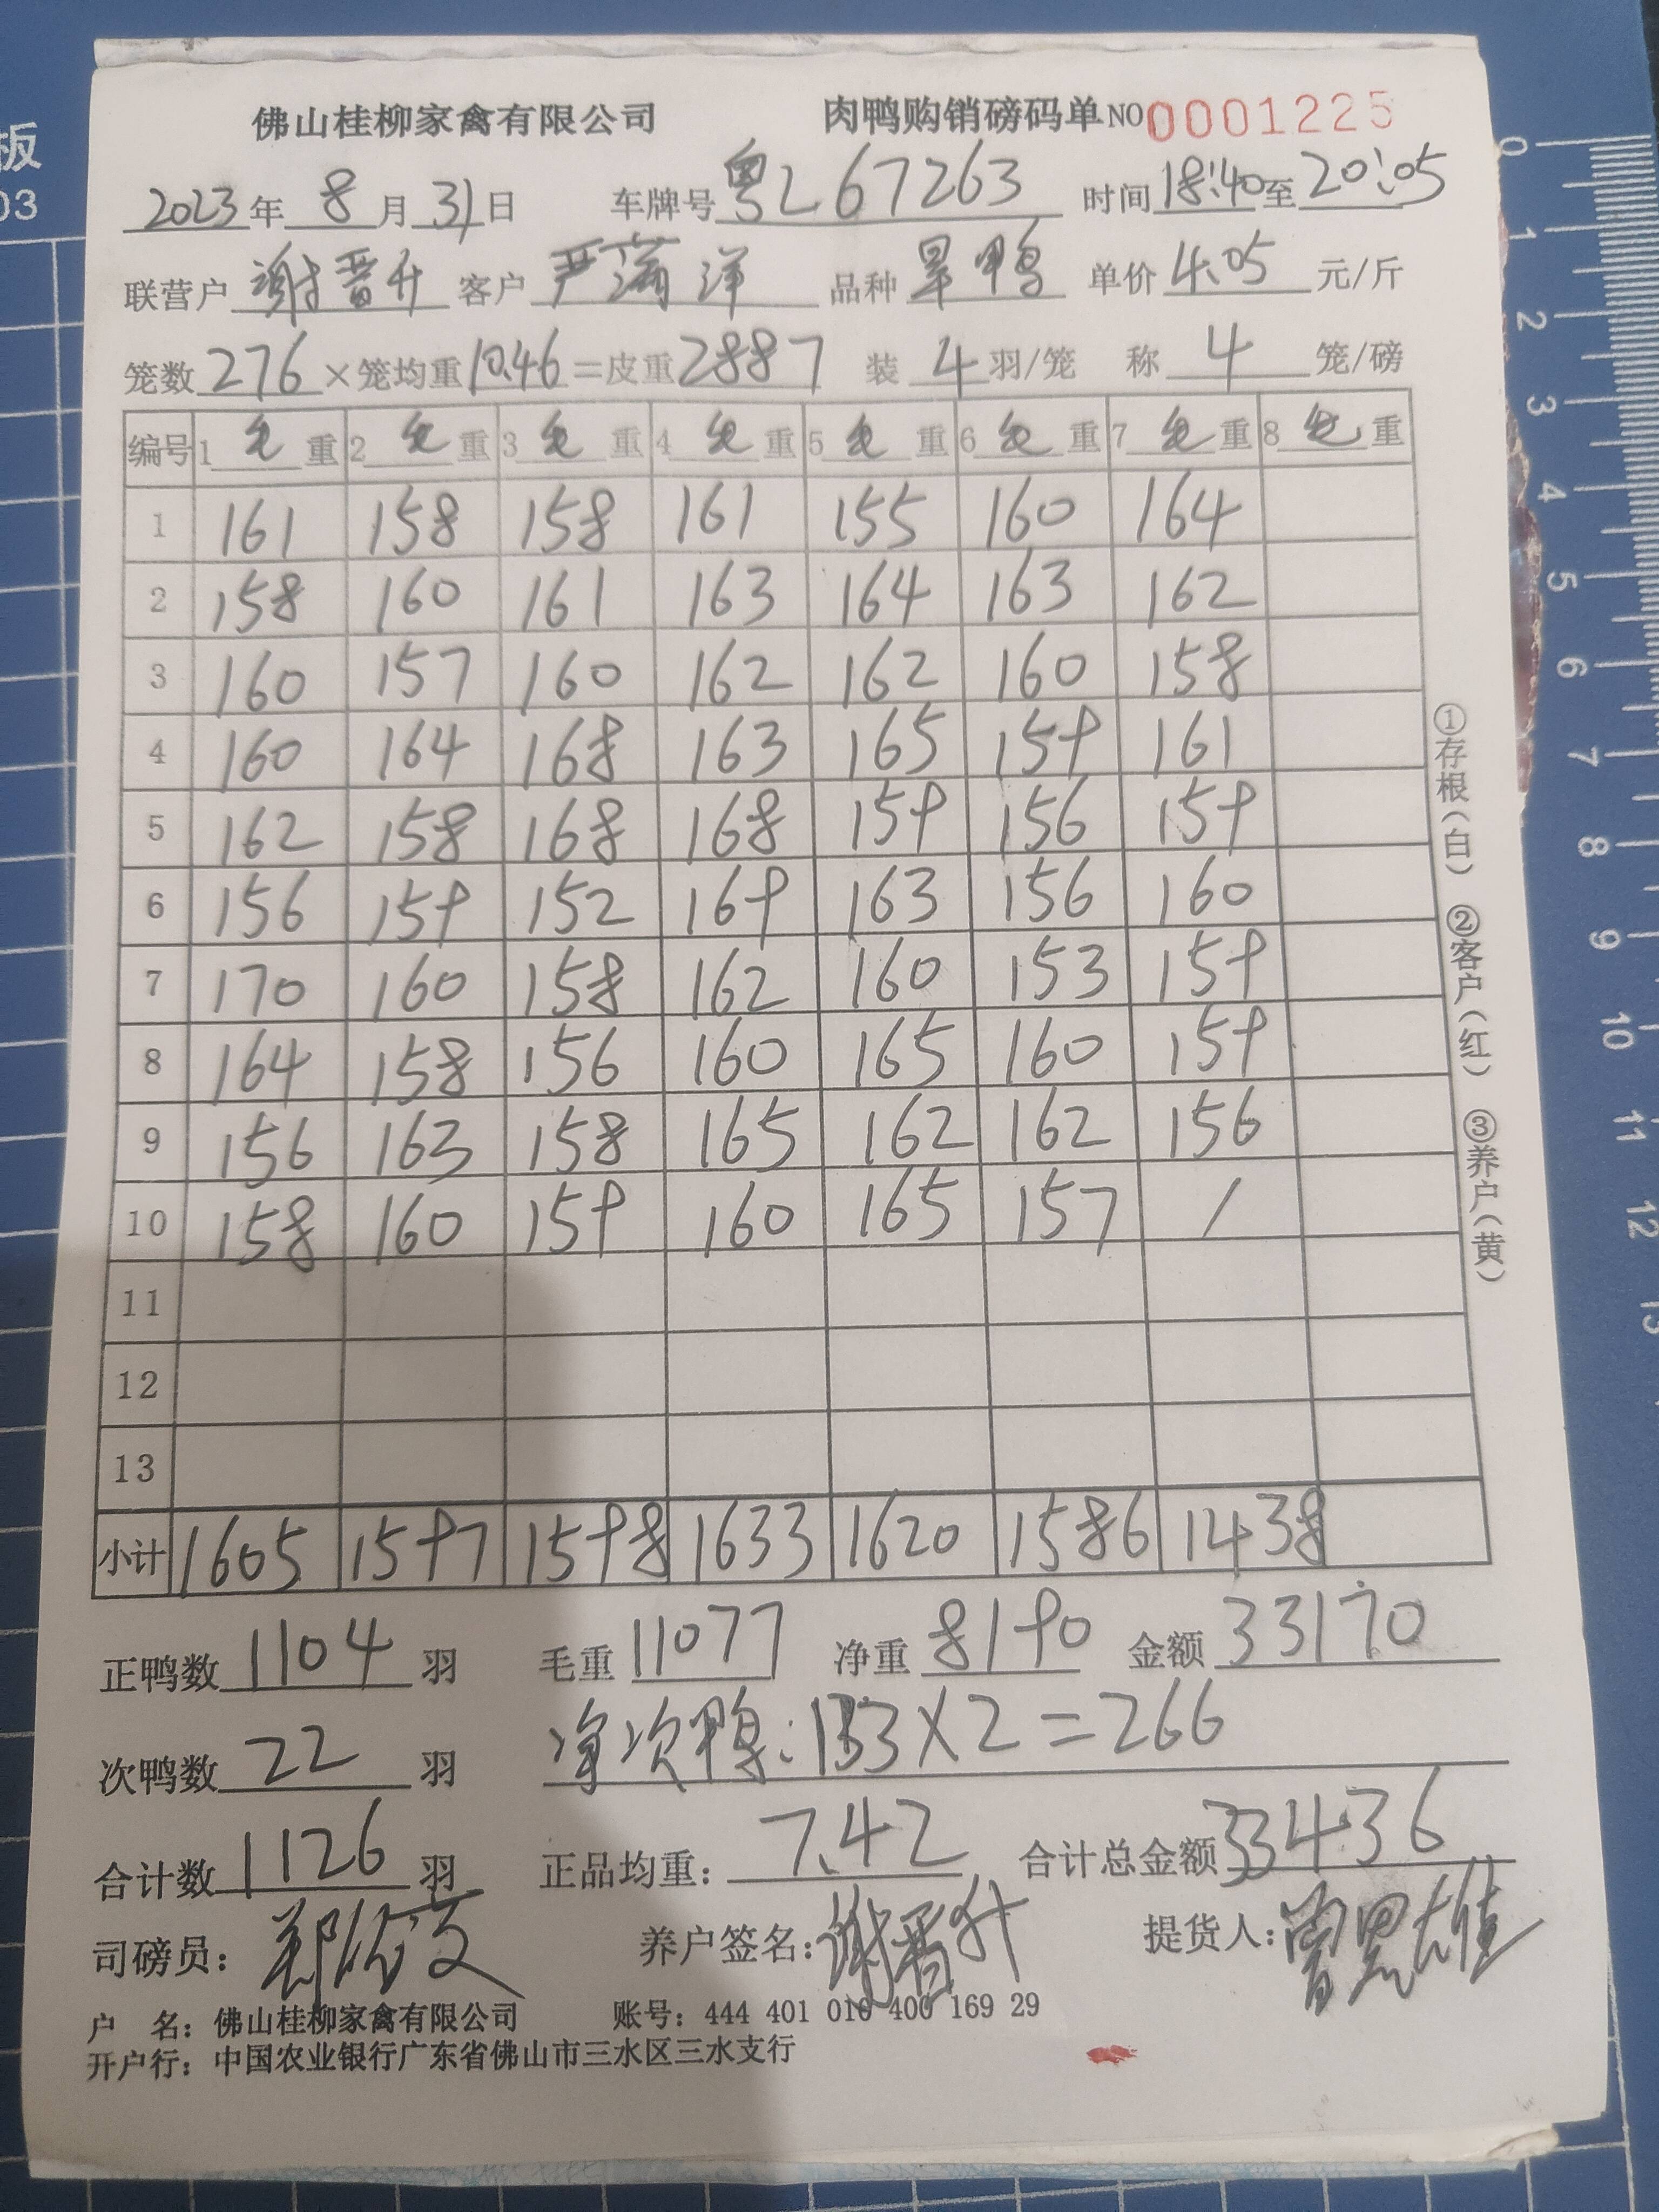 佛山桂柳家禽有限公司 肉鸭购销磅码单 NO 0001225
2023年 8月 31日 车牌号 粤L67263 时间 18:40 至 20:05
联营户 谢晋升 客户 严满洋 品种 旱鸭 单价 4.05 元/斤
笼数 276 × 笼均重 10.46 = 皮重 2887 装 4 羽/笼 称 4 笼/磅
编号 1 毛重 2 毛重 3 毛重 4 毛重 5 毛重 6 毛重 7 毛重 8 毛重
1 161 158 158 161 155 160 164
2 158 160 161 163 164 163 162
3 160 157 160 162 162 160 158
4 160 164 168 163 165 159 161
5 162 158 168 168 159 156 159
6 156 159 152 169 163 156 160
7 170 160 158 162 160 153 159
8 164 158 156 160 165 160 159
9 156 163 158 165 162 162 156
10 158 160 159 160 165 157 /
11
12
13
小计 1605 1597 1598 1633 1620 1586 1438
正鸭数 1104 羽 毛重 11077 净重 8190 金额 33170
次鸭数 22 羽 净次鸭:133×2=266
合计数 1126 羽 正品均重: 7.42 合计总金额 33436
司磅员: 养户签名: 谢晋升 提货人:
户 名: 佛山桂柳家禽有限公司 账号: 444 401 010 400 169 29
开户行: 中国农业银行广东省佛山市三水区三水支行
①存根(白) ②客户(红) ③养户(黄)
板
03
0
1
2
3
4
5
6
7
8
9
10
11
12
13